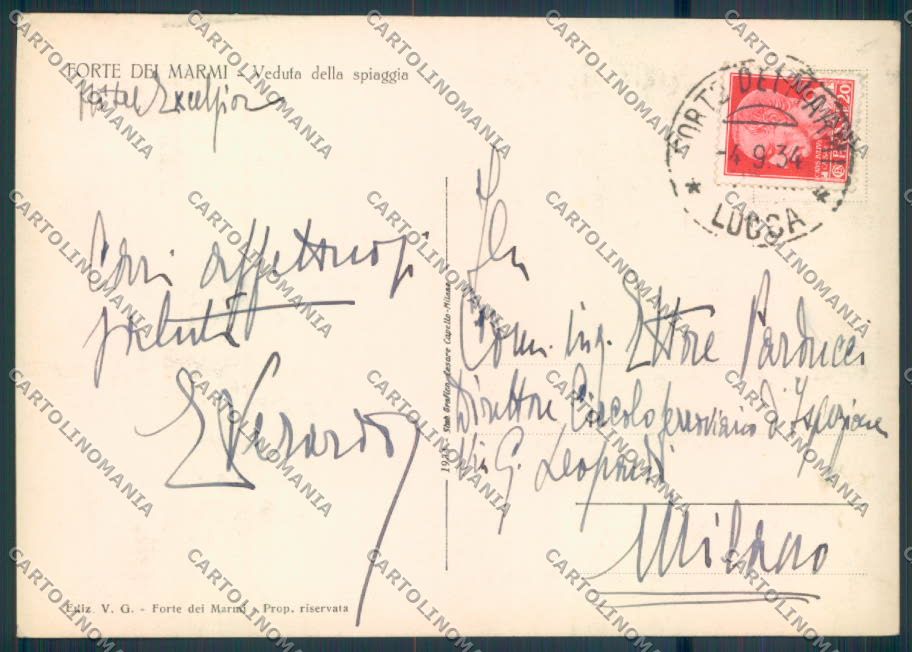 FORTE DEI MARMI - Veduta della spiaggia
Hôtel Excelsior
Cari affettuosi
saluti
FORTE DEI MARMI
-4.9.34
LUCCA
20
Comm. Ing. Ettore Parducci
Direttore Circolo ferroviario d'Ispezione
Via G. Leopardi
Milano
Stab. Grafico Cesare Capello - Milano
Ediz. V. G. - Forte dei Marmi - Prop. riservata
CARTOLINOMANIA